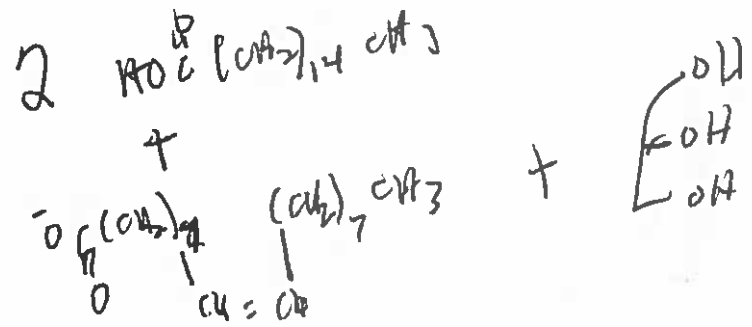 2 HOC(CH2)14 CH3
O
+
-OC(CH2)7 (CH2)7CH3
O
CH = CH
+
OH
OH
OH